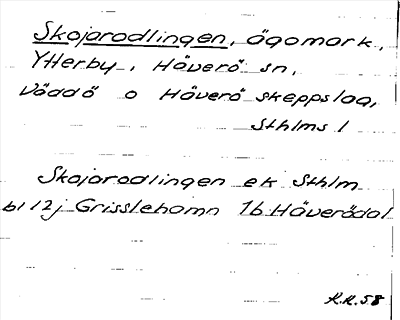 Skojarodlingen, ägomark,
Ytterby, Häverö sn,
Väddö o Häverö skeppslag,
Sthlms l
Skojarodlingen ek Sthlm
bl 12j Grisslehamn 1b Häverödal
K.K. 58